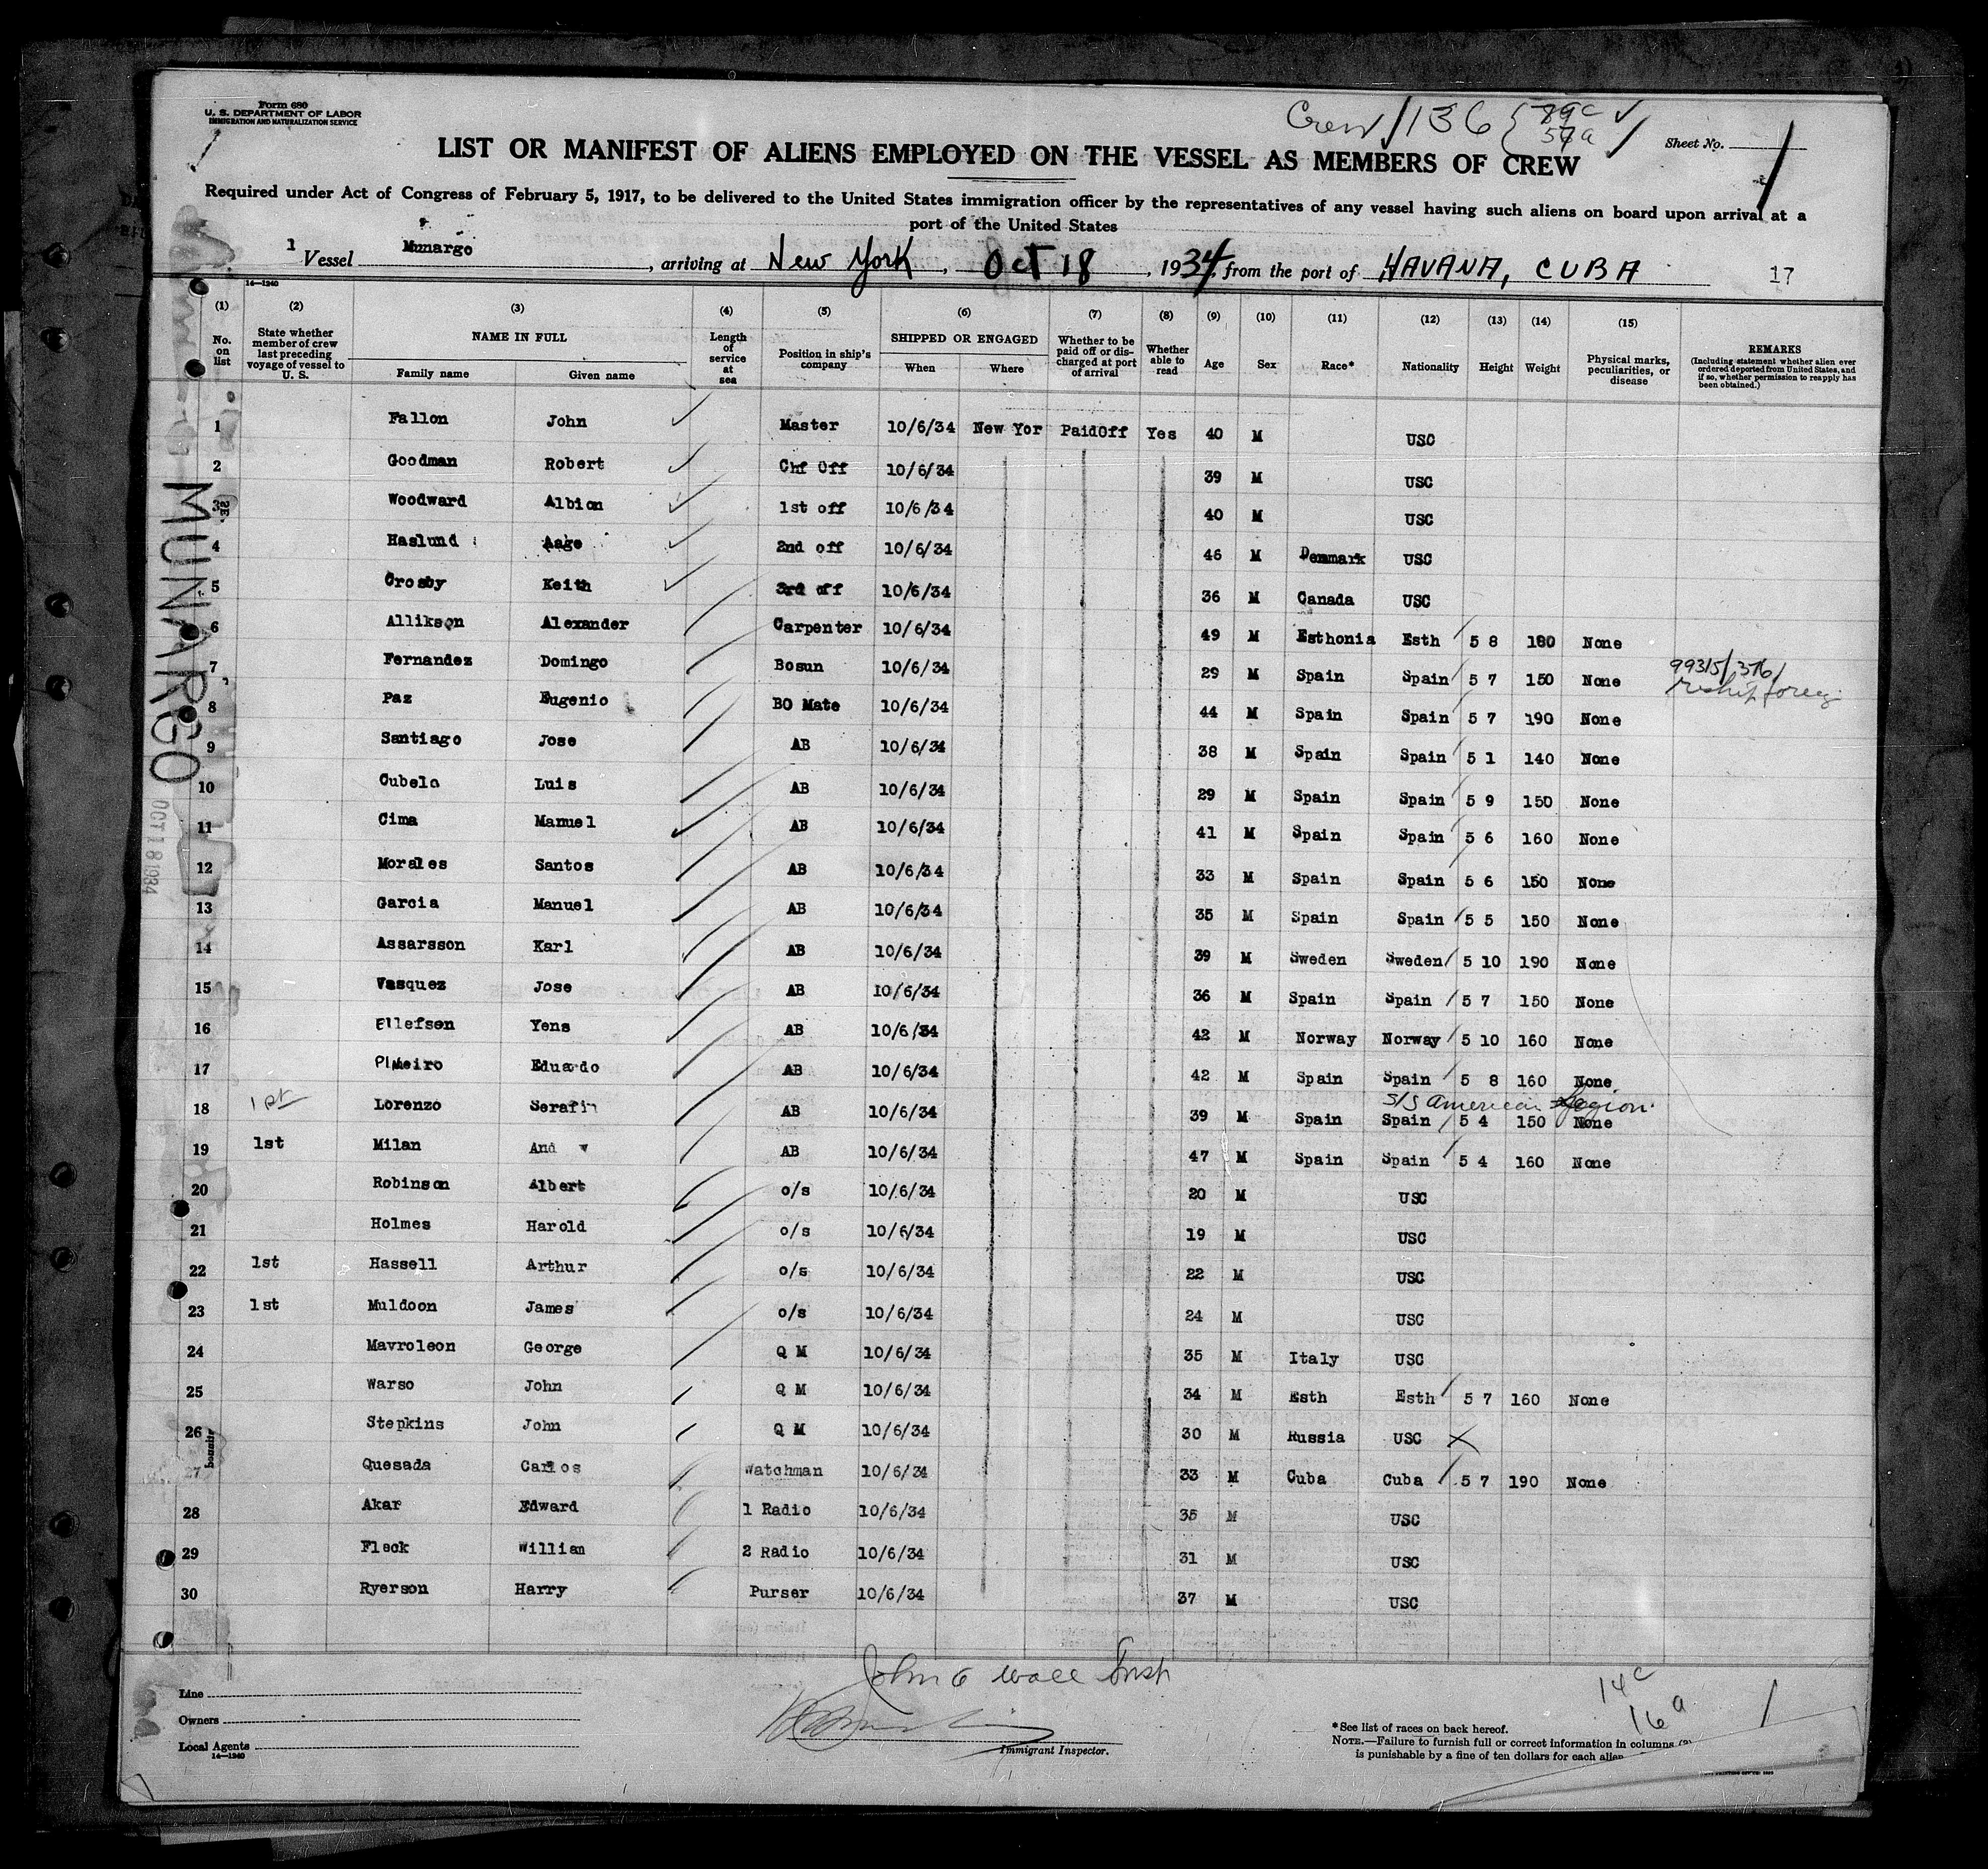 Form 680
U. S. DEPARTMENT OF LABOR
IMMIGRATION AND NATURALIZATION SERVICE
Crew 136 { 89c
57a
Sheet No. 1
LIST OR MANIFEST OF ALIENS EMPLOYED ON THE VESSEL AS MEMBERS OF CREW
Required under Act of Congress of February 5, 1917, to be delivered to the United States immigration officer by the representatives of any vessel having such aliens on board upon arrival at a
port of the United States
1 Vessel Munargo, arriving at New York, Oct 18, 1934, from the port of HAVANA, CUBA 17
14—1240
(1) (2) (3) (4) (5) (6) (7) (8) (9) (10) (11) (12) (13) (14) (15)
No. on list State whether member of crew last preceding voyage of vessel to U. S. NAME IN FULL Family name Given name Length of service at sea Position in ship's company SHIPPED OR ENGAGED When Where Whether to be paid off or discharged at port of arrival Whether able to read Age Sex Race* Nationality Height Weight Physical marks, peculiarities, or disease REMARKS (Including statement whether alien ever ordered deported from United States, and if so, whether permission to reapply has been obtained.)
1 Fallon John Master 10/6/34 New Yor PaidOff Yes 40 M USC
2 Goodman Robert Chf Off 10/6/34 39 M USC
3 Woodward Albion 1st off 10/6/34 40 M USC
4 Haslund Aage 2nd off 10/6/34 46 M Denmark USC
5 Crosby Keith 3rd off 10/6/34 36 M Canada USC
6 Allikson Alexander Carpenter 10/6/34 49 M Esthonia Esth 5 8 180 None
7 Fernandez Domingo Bosun 10/6/34 29 M Spain Spain 5 7 150 None 99315/376/
8 Paz Eugenio BO Mate 10/6/34 44 M Spain Spain 5 7 190 None
9 Santiago Jose AB 10/6/34 38 M Spain Spain 5 1 140 None
10 Cubelo Luis AB 10/6/34 29 M Spain Spain 5 9 150 None
11 Cima Manuel AB 10/6/34 41 M Spain Spain 5 6 160 None
12 Morales Santos AB 10/6/34 33 M Spain Spain 5 6 150 None
13 Garcia Manuel AB 10/6/34 35 M Spain Spain 5 5 150 None
14 Assarsson Karl AB 10/6/34 39 M Sweden Sweden 5 10 190 None
15 Vasquez Jose AB 10/6/34 36 M Spain Spain 5 7 150 None
16 Ellefsen Yens AB 10/6/34 42 M Norway Norway 5 10 160 None
17 Piñeiro Eduardo AB 10/6/34 42 M Spain Spain 5 8 160 None
S/S American Legion
18 1st Lorenzo Serafin AB 10/6/34 39 M Spain Spain 5 4 150 None
19 1st Milan And AB 10/6/34 47 M Spain Spain 5 4 160 None
20 Robinson Albert o/s 10/6/34 20 M USC
21 Holmes Harold o/s 10/6/34 19 M USC
22 1st Hassell Arthur o/s 10/6/34 22 M USC
23 1st Muldoon James o/s 10/6/34 24 M USC
24 Mavroleon George Q M 10/6/34 35 M Italy USC
25 Warso John Q M 10/6/34 34 M Esth Esth 5 7 160 None
26 Stepkins John Q M 10/6/34 30 M Russia USC
27 Quesada Carlos Watchman 10/6/34 33 M Cuba Cuba 5 7 190 None
28 Akar Edward 1 Radio 10/6/34 35 M USC
29 Fleck Willian 2 Radio 10/6/34 31 M USC
30 Ryerson Harry Purser 10/6/34 37 M USC
MUNARGO
OCT 18 1934
John G Wall Insp
14c
16a
Line
Owners
Local Agents
14—1240
Immigrant Inspector.
*See list of races on back hereof.
NOTE.—Failure to furnish full or correct information in columns
is punishable by a fine of ten dollars for each alien